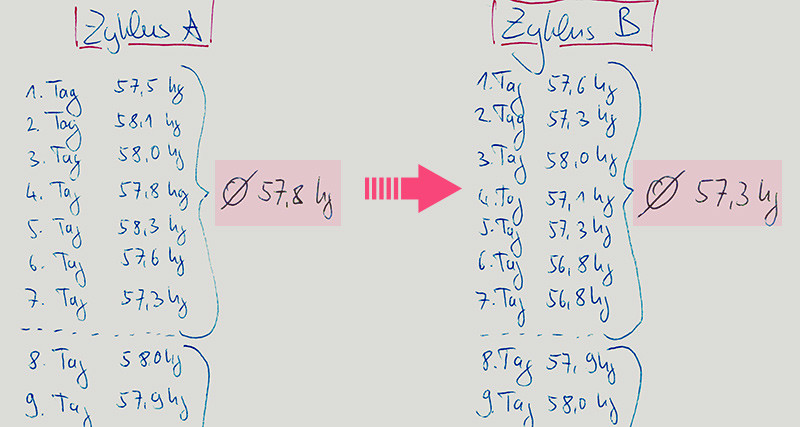 Zyklus A
1. Tag 57,5 kg
2. Tag 58,1 kg
3. Tag 58,0 kg
4. Tag 57,8 kg
5. Tag 58,3 kg
6. Tag 57,6 kg
7. Tag 57,3 kg
Ø 57,8 kg
8. Tag 580 kg
9. Tag 57,9 kg
Zyklus B
1. Tag 57,6 kg
2. Tag 57,3 kg
3. Tag 58,0 kg
4. Tag 57,1 kg
5. Tag 57,3 kg
6. Tag 56,8 kg
7. Tag 56,8 kg
Ø 57,3 kg
8. Tag 57,9 kg
9. Tag 58,0 kg